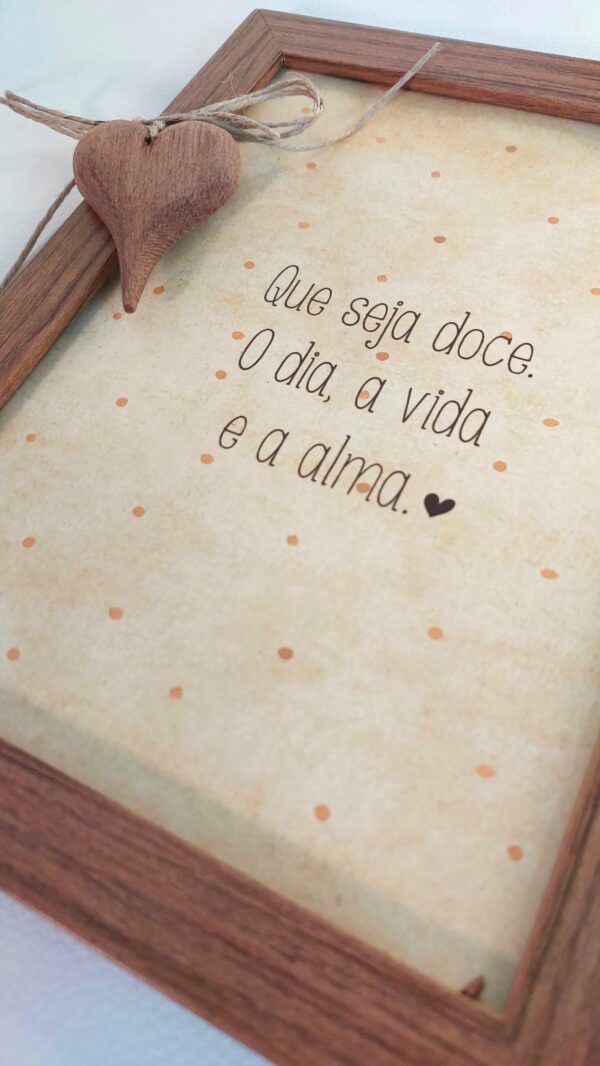 Que seja doce.
O dia, a vida
e a alma.